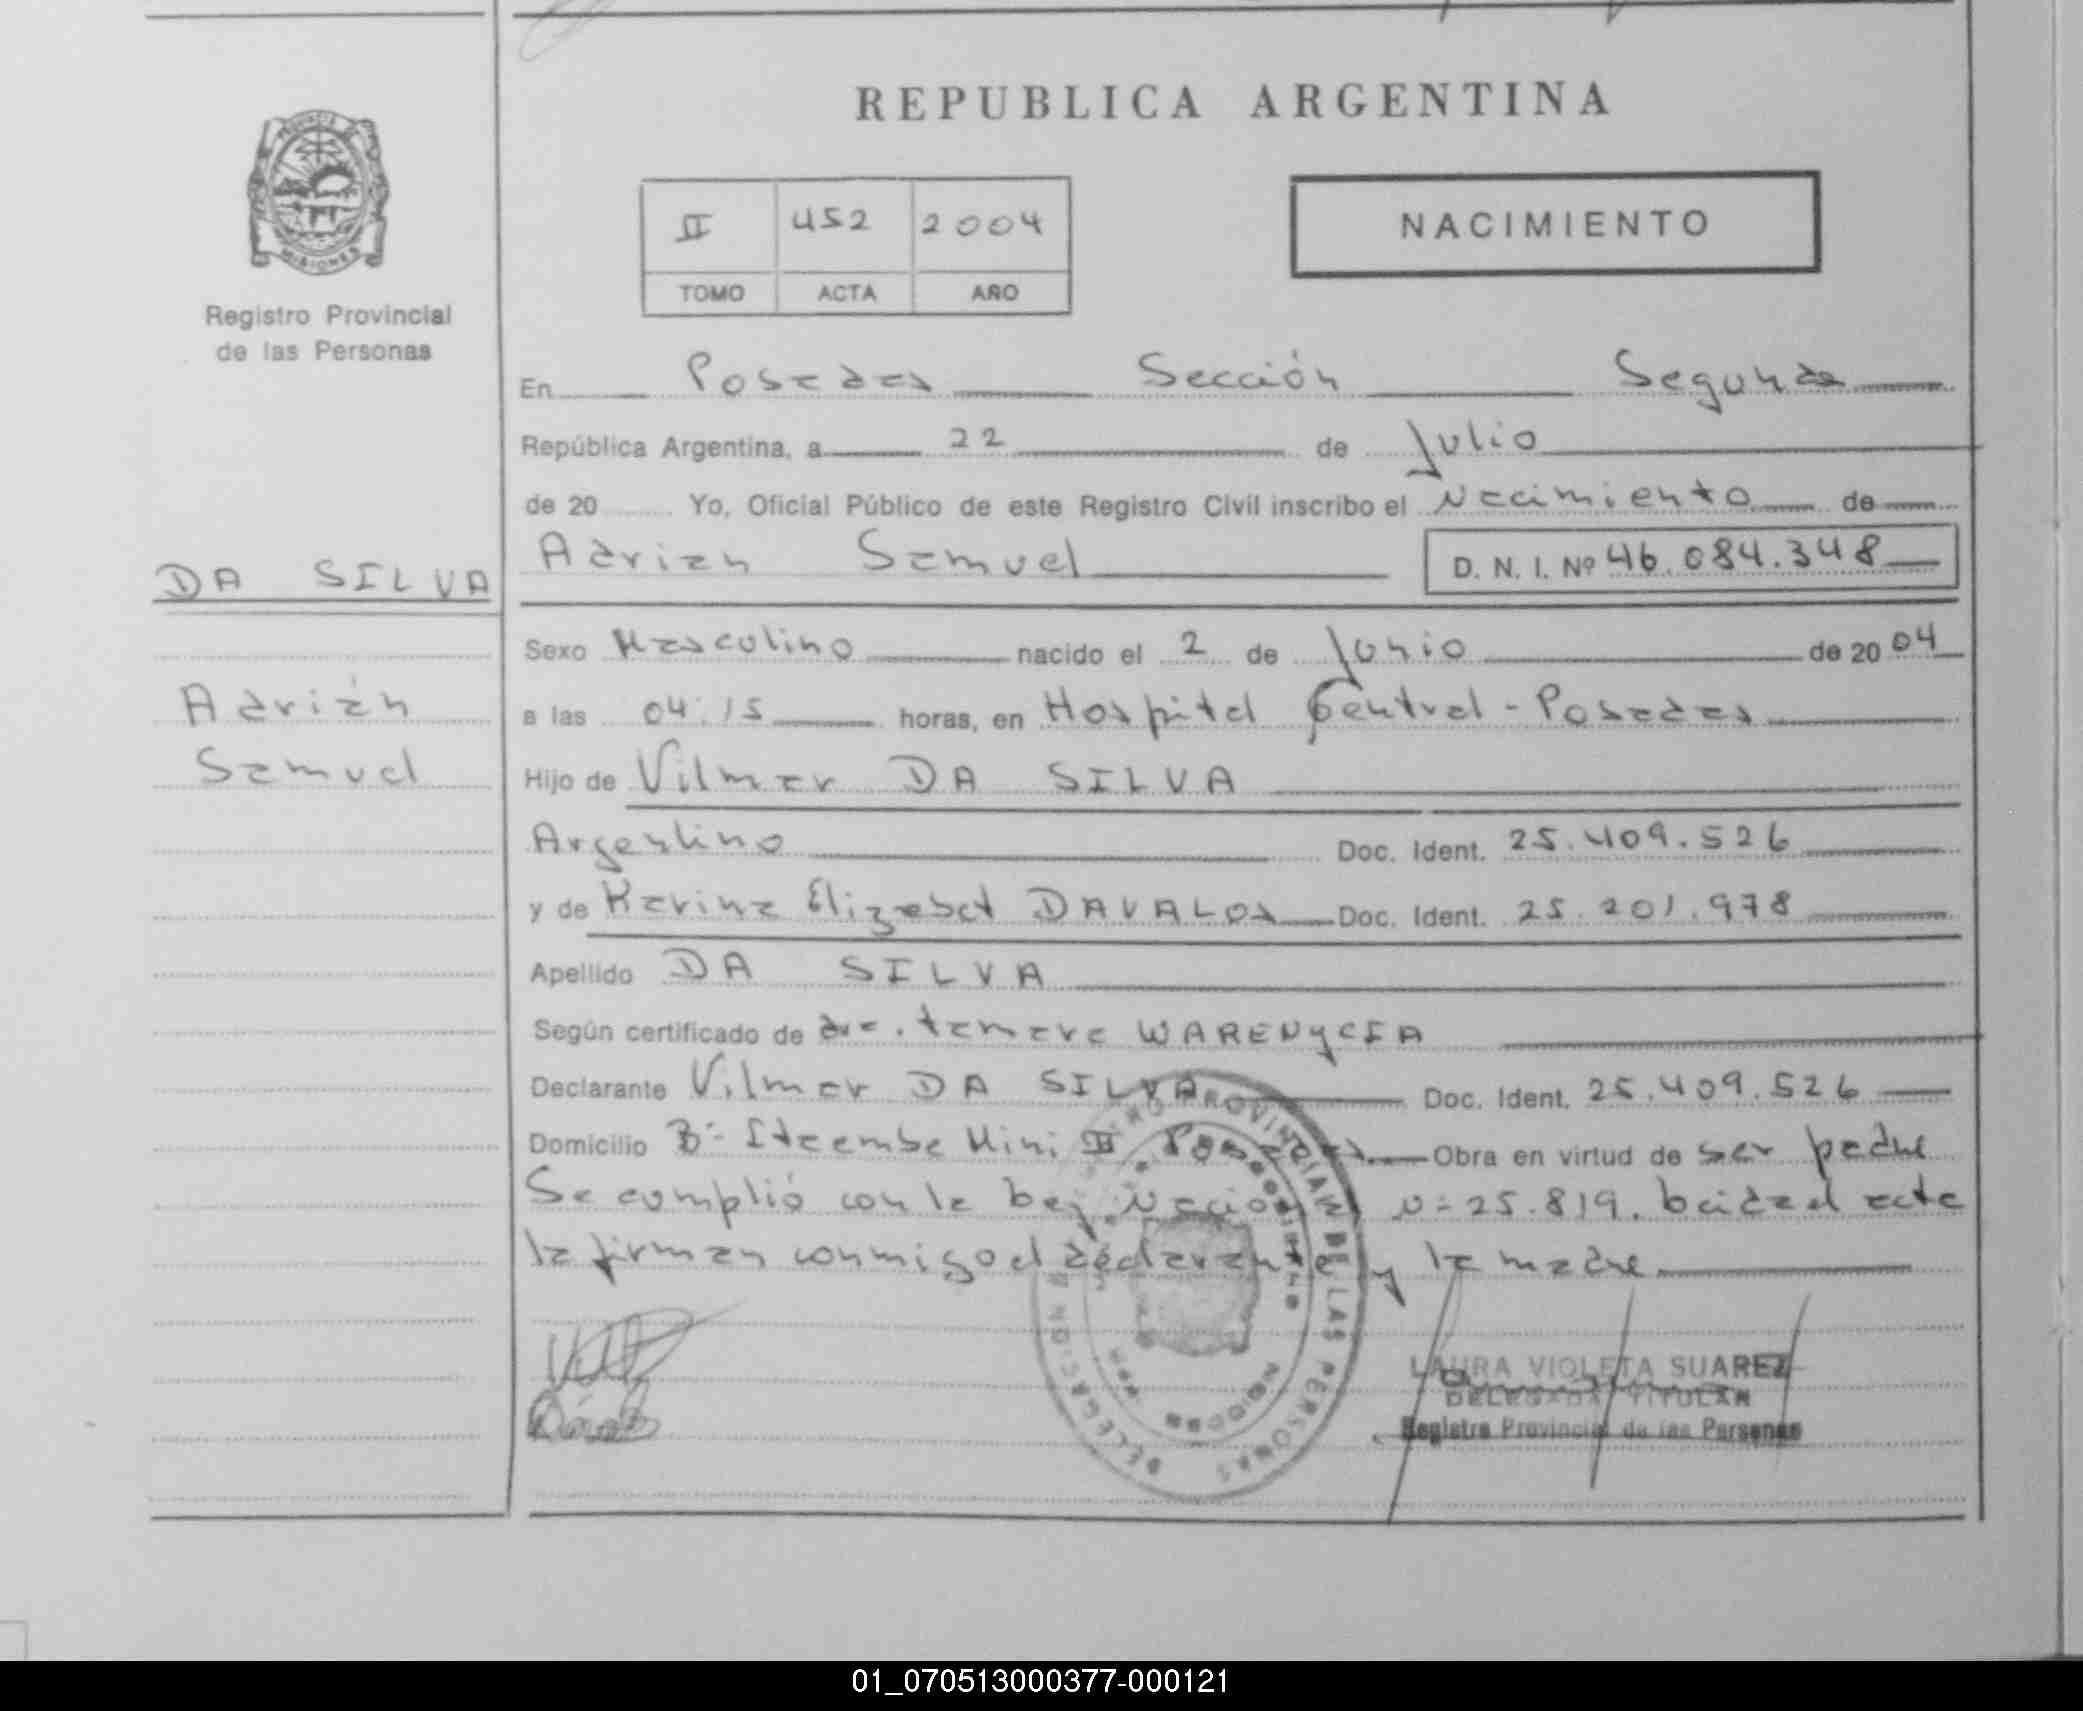 REPUBLICA ARGENTINA
II 452 2004
TOMO ACTA AÑO
NACIMIENTO
PROVINCIA DE
MISIONES
Registro Provincial
de las Personas
DA SILVA
Adrián
Samuel
En Posadas Sección Segunda
República Argentina, a 22 de Julio
de 20 Yo, Oficial Público de este Registro Civil inscribo el Nacimiento de
Adrian Samuel D. N. I. Nº 46.084.348
Sexo Masculino nacido el 2 de Junio de 20 04
a las 04:15 horas, en Hospital Central - Posadas
Hijo de Vilmar DA SILVA
Argentino Doc. Ident. 25.409.526
y de Karina Elizabet DAVALOS Doc. Ident. 25.201.978
Apellido DA SILVA
Según certificado de dra. tamara WARENYCIA
Declarante Vilmar DA SILVA Doc. Ident. 25.409.526
Domicilio Bº Itaembe Mini II Posadas Obra en virtud de ser padre
Se cumplió con la Ley Nacional Nº 25.819. Leida el acta
la firman conmigo el declarante y la madre
REGISTRO PROVINCIAL DE LAS PERSONAS
DELEGACION
LAURA VIOLETA SUAREZ
DELEGADA TITULAR
Registro Provincial de las Personas
01_070513000377-000121